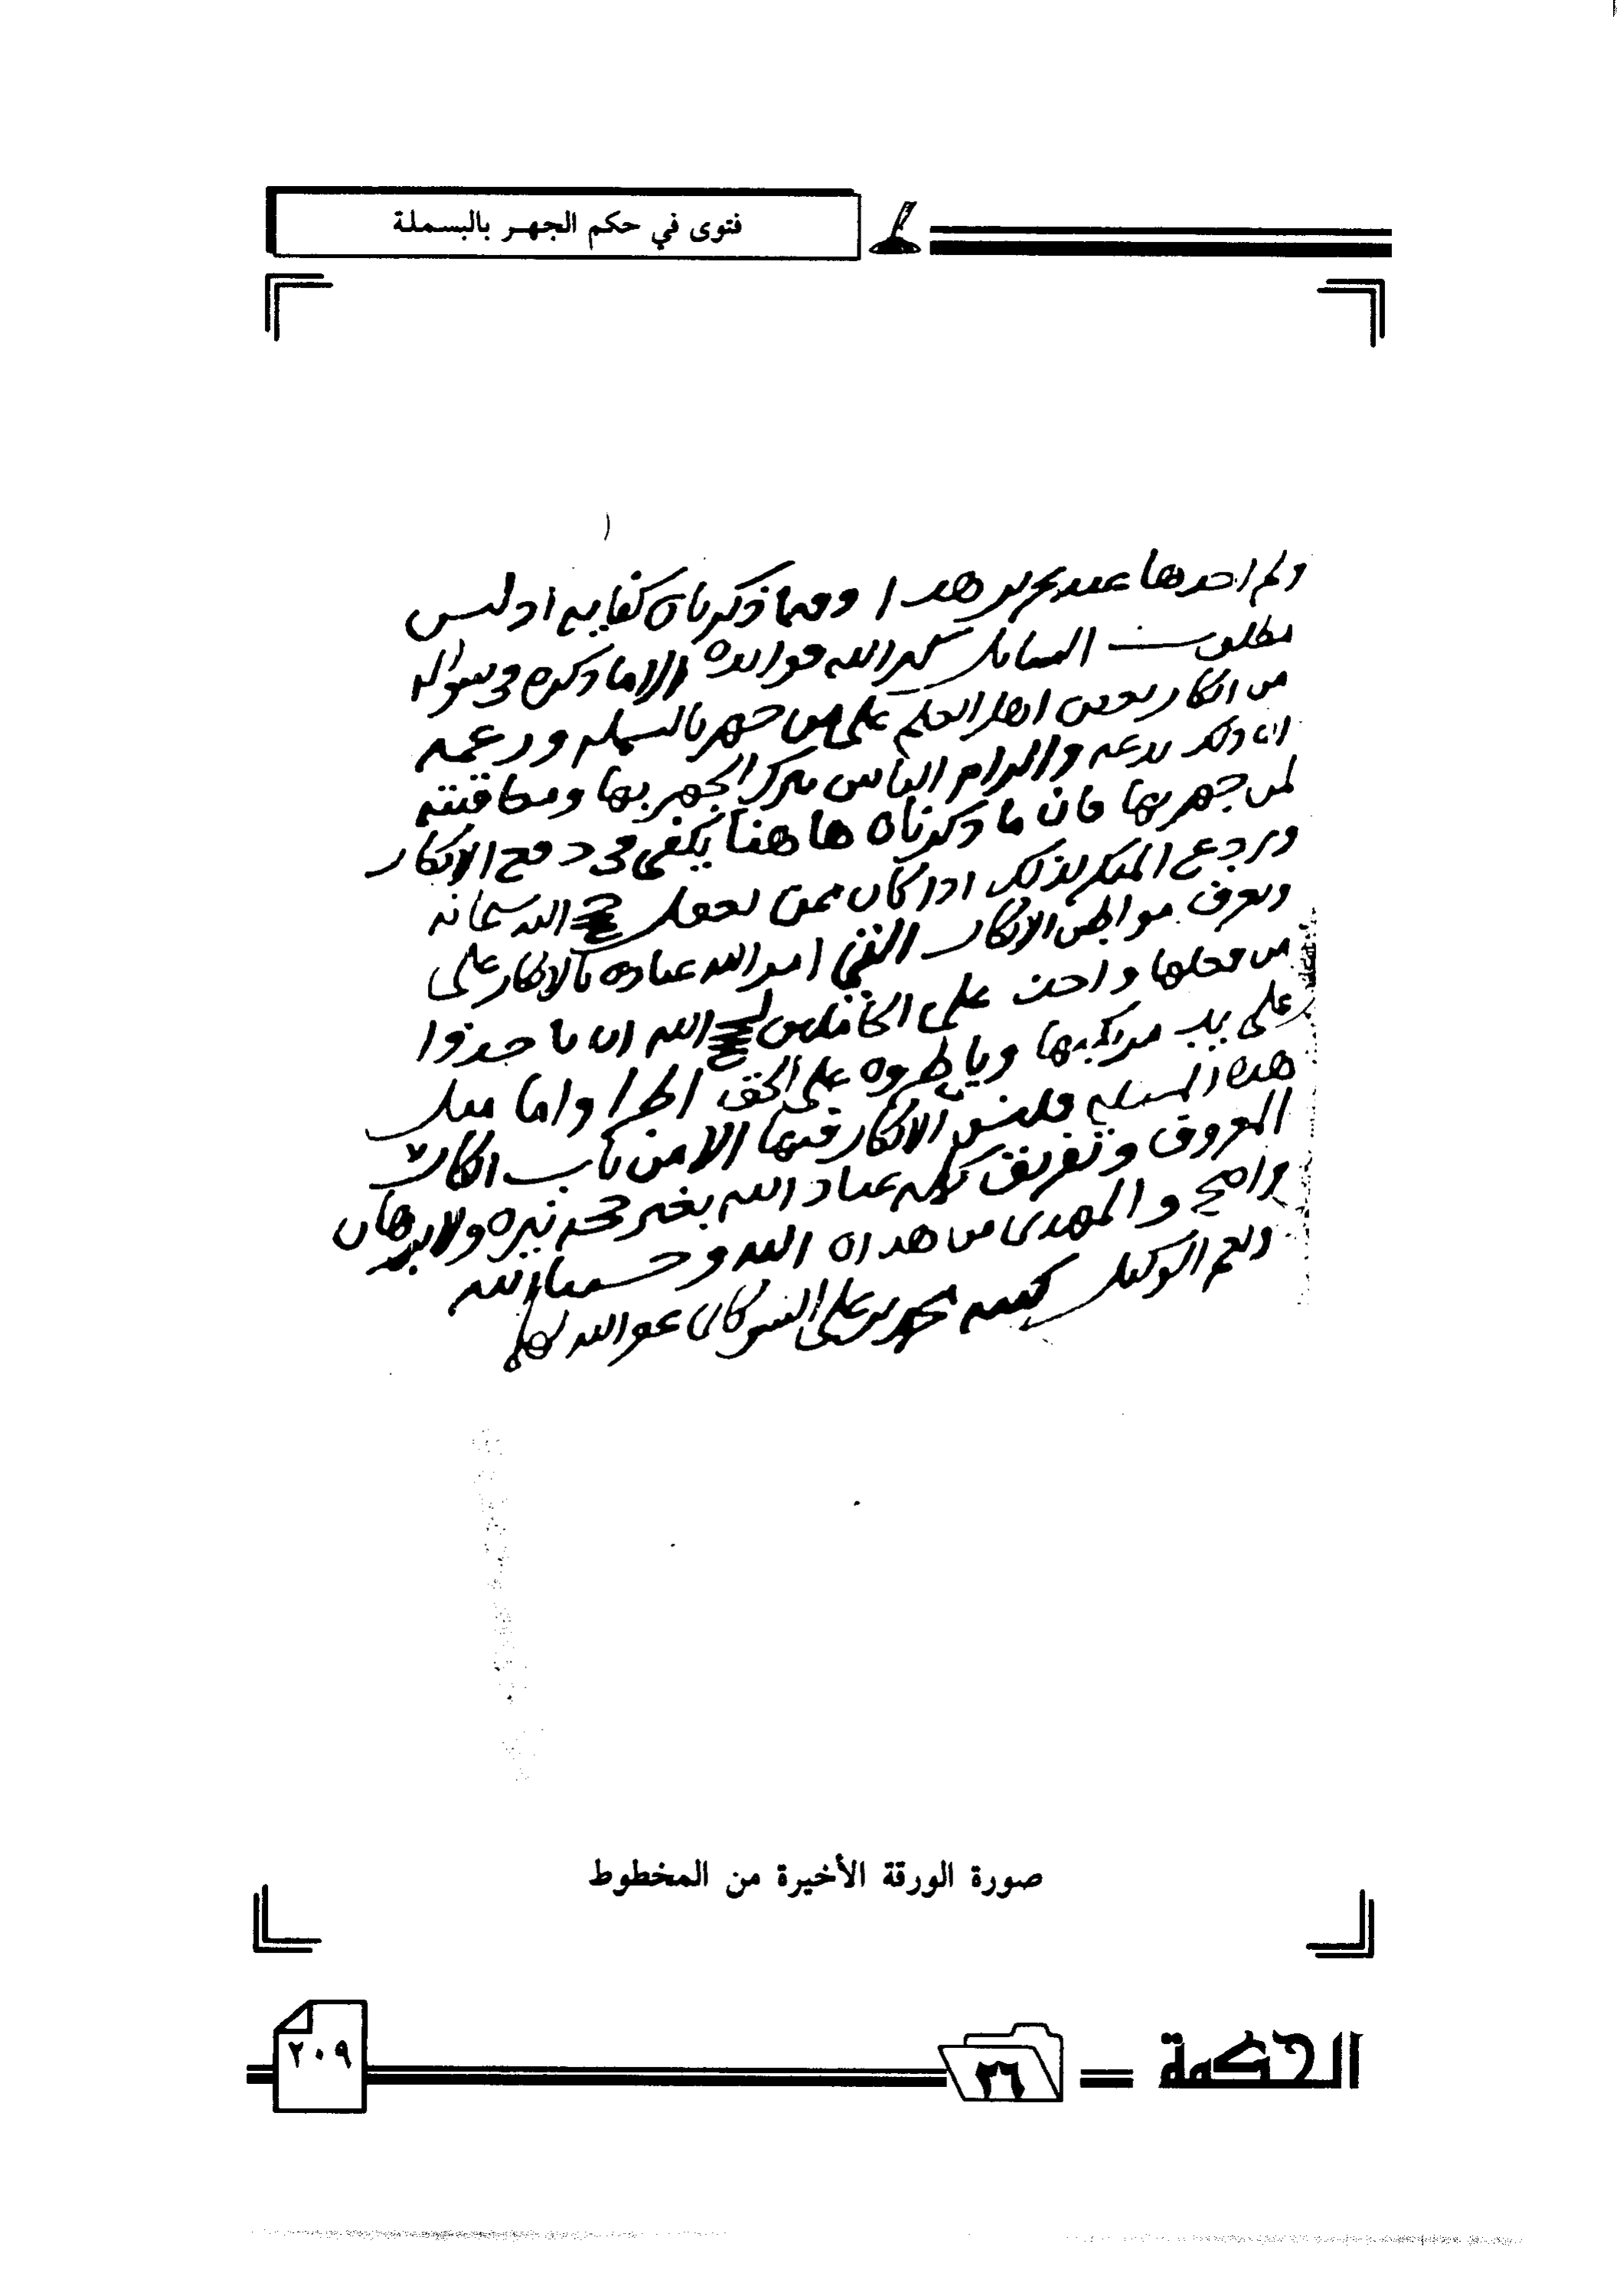 فتوى في حكم الجهر بالبسملة
ولم احدها عند تحرير هدا وفيما ذكرناه كفايه اد ليس
مطلوب السايل كثر الله فوايده الا ما دكره في سواله
من انكار بعض اهل العلم على من جهر بالبسمله وزعمه
ان دلك بدعه والزام الناس بترك الجهر بها ومعاقبته
لمن جهر بها فان ما دكرناه هاهنا يكفى في دفع الانكار
ويرجع المنكر لذلك ادا كان ممن يعقل حجج الله سبحانه
ويعرف مواطن الانكار التي امر الله عباده بالانكار على
من فعلها واجب على الحاملين لحجج الله ان ياخذوا
على يد مرتكبها وياطروه على الحق اطرا واما مثل
هذه المسئله فليس الانكار فيها الا من باب انكار
المعروف وتفريق كلمه عباد الله بغير حجه نيره ولا برهان
واضح والمهدى من هداه الله وحسبنا الله
ونعم الوكيل كتبه محمد بن على الشوكانى عفر الله لهما
صورة الورقة الأخيرة من المخطوط
الحكمة
٢٦
٢٠٩